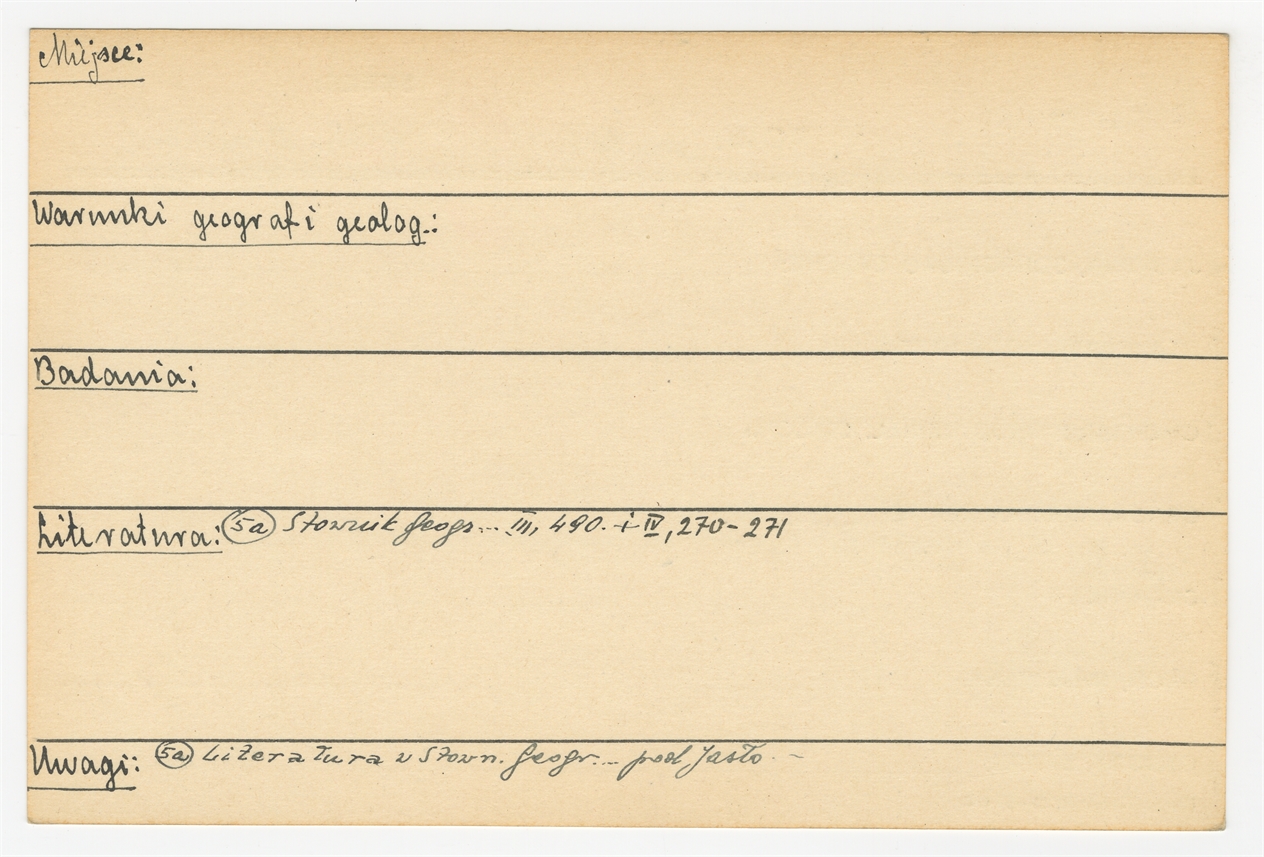 Miejsce:
Warunki geograf i geolog.:
Badania:
Literatura: 5a Słownik Geogr... III, 490. i IV, 270-271
Uwagi: 5a Literatura v Słown. Geogr... pod Jasło. -